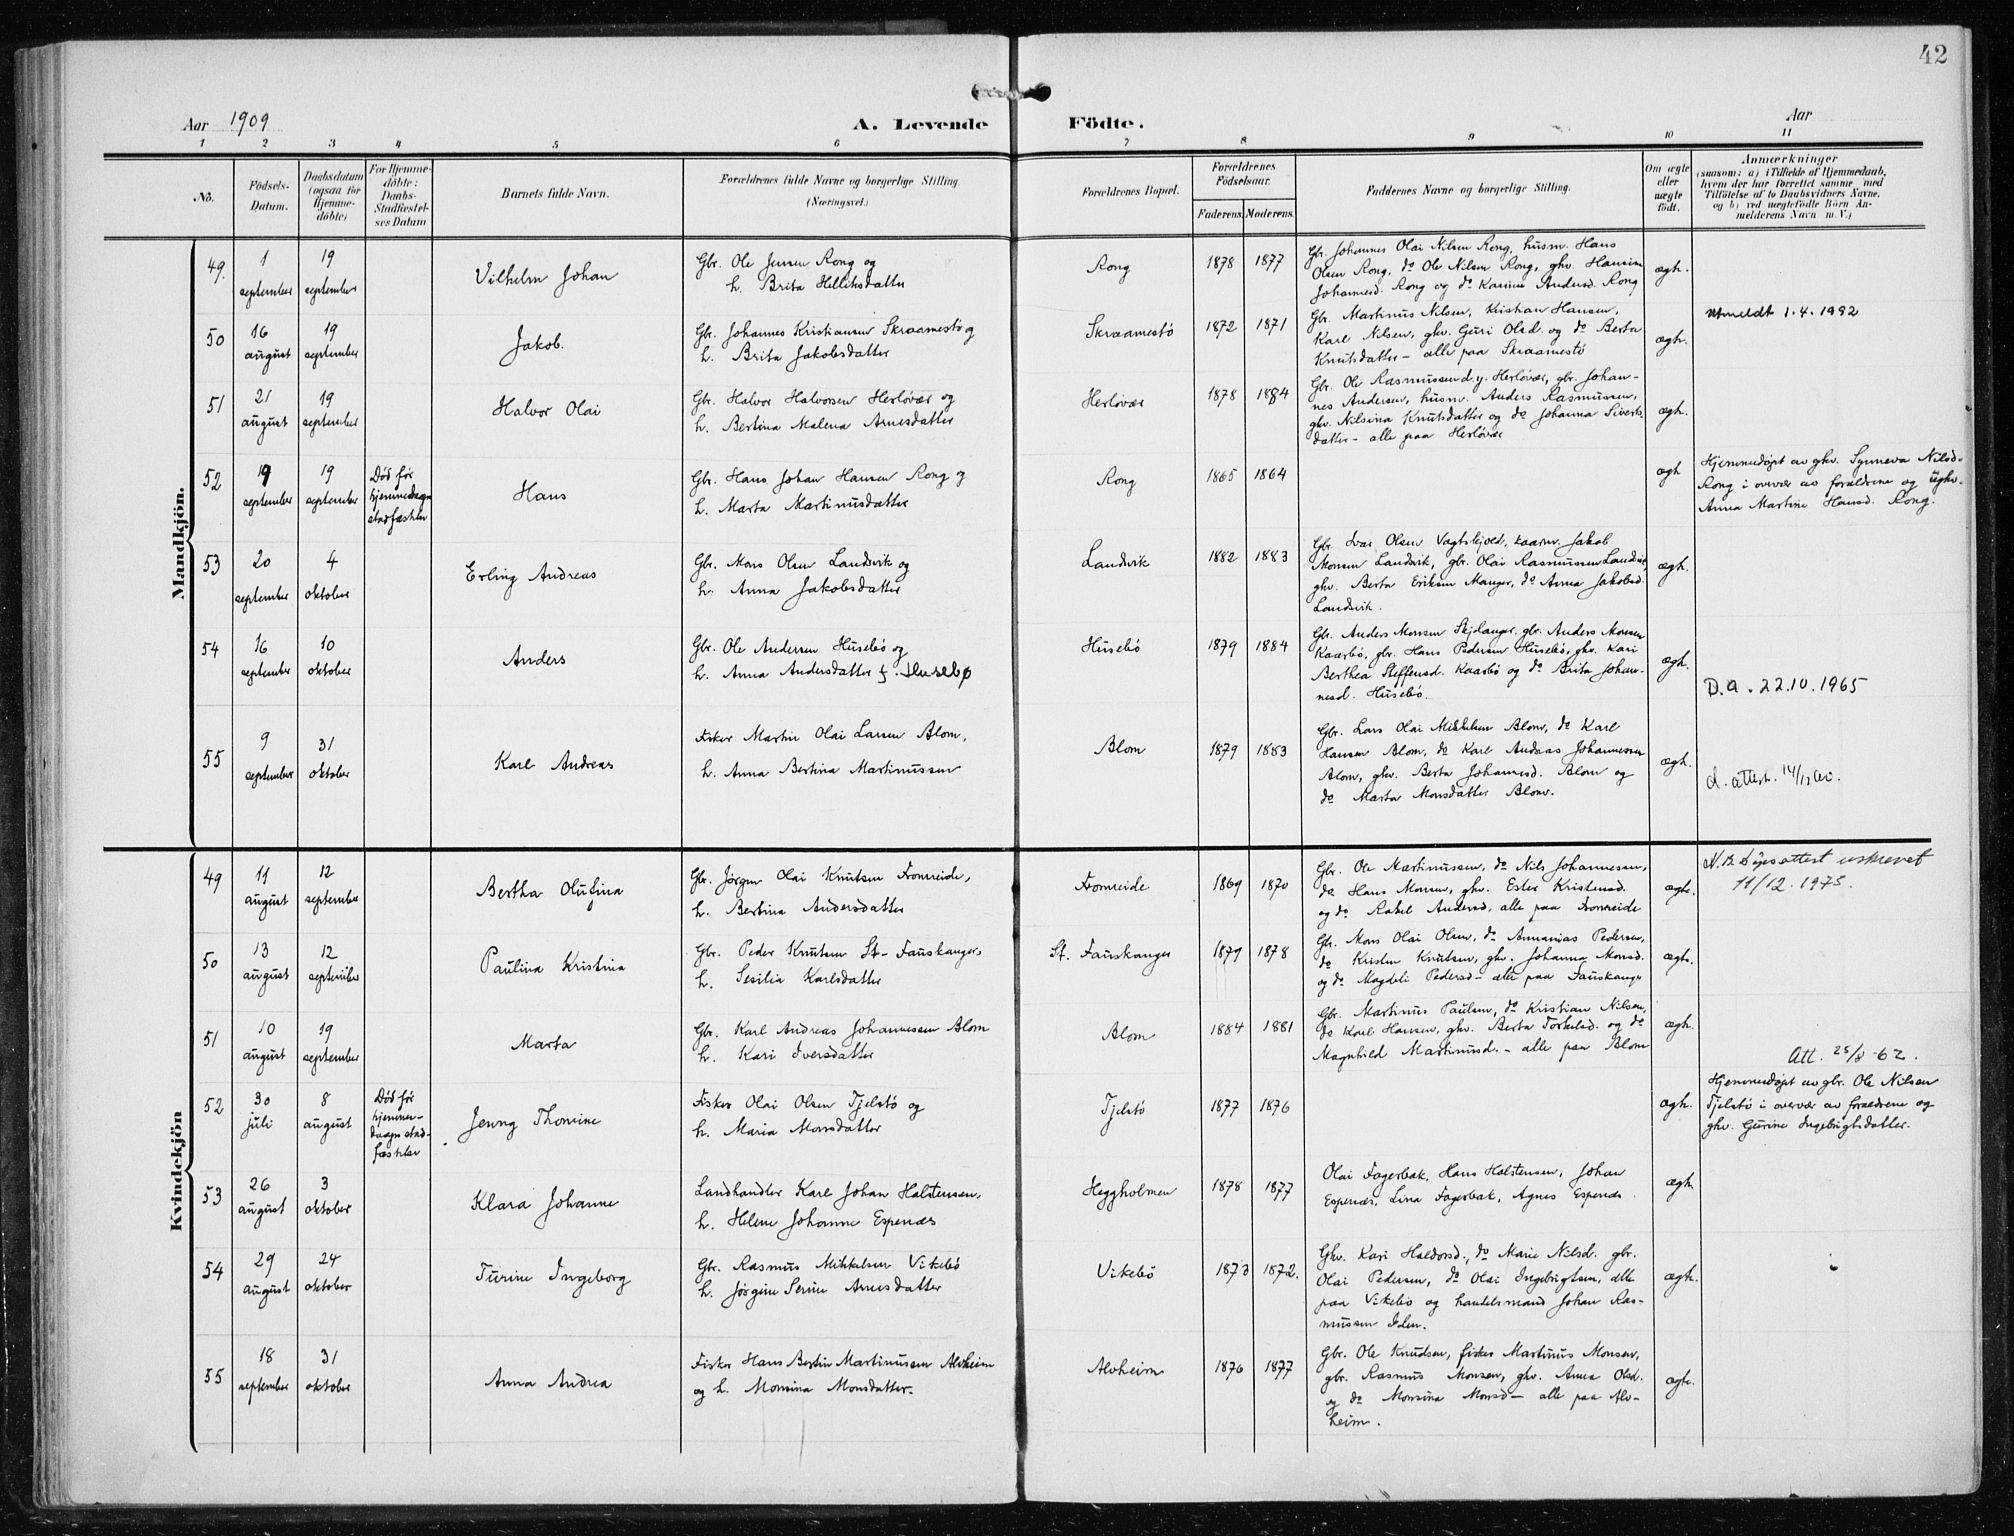 42
Aar 1909
A. Levende Födte.
Aar
1 2 3 4 5 6 7 8 9 10 11
No.
Födsels-
Datum.
Daabsdatum
(ogsaa for
Hjemme-
døbte)
For Hjemme-
døbte:
Daabs-
Stadfæstel-
ses Datum
Barnets fulde Navn.
Forældrenes fulde Navne og borgerlige Stilling.
(Næringsvei.)
Forældrenes Bopæl.
Forældrenes
Födselsaar.
Faderens. Moderens.
Faddernes Navne og borgerlige Stilling.
Om ægte
eller
uægte
födt.
Anmærkninger
(saasom: a) i Tilfælde af Hjemmedaab,
hvem der har forrettet samme med
Tilföielse af to Daabsvidners Navne,
og b) ved uægtefödte Börn An-
melderens Navn m. V.)
Mandkjön.
49. 1 september
19 september
Vilhelm Johan
Gbr. Ole Jensen Rong og
h. Brita Helliksdatter
Rong
1878 1877
Gbr. Johannes Olai Nilsen Rong, husm. Hans
Olsen Rong, do Ole Nilsen Rong, ghv. Hansine
Johannesd. Rong og do Karine Andersd. Rong
ægh.
50 16 august
19 september
Jakob.
Gbr. Johannes Kristiansen Skraamestø og
h. Brita Jakobsdatter
Skraamestö
1872 1871
Gbr. Martinus Nilsen, Kristian Hansen,
Karl Nilsen, ghv. Guri Olsd. og do Berta
Knutsdatter - alle paa Skraamestö
ægh.
Utmeldt 1.4.1992
51 21 august
19 september
Halvor Olai
Gbr. Halvor Halvorsen Herløvær og
h. Bertina Malena Arnesdatter
Herløvær
1878 1884
Gbr. Ole Rasmussen d.y. Herløvær, gbr. Johan-
nes Andersen, husm. Anders Rasmussen,
ghv. Nilsina Knutsdatter og do Johanna Siverts-
datter - alle paa Herløvær
ægh.
52 19 september
19 september
Død før
hjemmedaapn
stadfæstedes
Hans
Gbr. Hans Johan Hansen Rong og
h. Marta Martinusdatter
Rong
1865 1864
ægh
Hjemmedøpt av ghv. Synneva Nilsd.
Rong i overvær av forældrene og ughv.
Anna Martine Hansd. Rong.
53 20 september
4 oktober
Erling Andreas
Gbr. Mons Olsen Landsvik og
h. Anna Jakobsdatter
Landsvik
1882 1883
Gbr. Ivar Olsen Vagtskjold, kaarm. Jakob
Monsen Landsvik, gbr. Olai Rasmussen Landsvik,
ghv. Berta Eriksen Manger, do Anna Jakobsd.
Landsvik.
ægh.
54 16 september
10 oktober
Anders
Gbr. Ole Andersen Husebö og
h. Anna Andersdatter f. Husebø
Husebö
1879 1884
Gbr. Anders Monsen Skjelanger, gbr. Anders Monsen
Kaarbö, gbr. Hans Pedersen Husebö, ghv. Kari
Berthea Steffensd. Kaarbö og do Brita Johan-
nesd. Husebö.
ægh.
D.a. 22.10.1965
55 9 september
31 oktober
Karl Andreas
Fisker Martin Olai Larsen Blom,
h. Anna Bertina Martinussen
Blom
1879 1883
Gbr. Lars Olai Mikkelsen Blom, do Karl
Hansen Blom, do Karl Andreas Johannessen
Blom, ghv. Berta Johannesd. Blom og
do Marta Monsdatter Blom.
ægh.
d. attest. 14/12
Kvindekjön
49 11 august
12 september
Bertha Olufina
Gbr. Jørgen Olai Knutsen Fromreide,
h. Bertina Andersdatter
Fromreide
1869 1870
Gbr. Ole Martinussen, do Nils Johannessen,
do Hans Monsen, ghv. Ester Kristensd.
og do Rakel Andersd. alle paa Fromreide
ægte.
N.B. Dåpsattest utskrevet
11/12.1973.
50 13 august
12 september
Paulina Kristina
Gbr. Peder Knutsen St. Fauskanger,
h. Sesilia Karlsdatter
St. Fauskanger
1879 1878
Gbr. Mons Olai Olsen, do Annanias Pedersen,
do Kristen Knutsen, ghv. Johanna Monsd.
og do Magdeli Pedersd - alle paa Fauskanger
ægte.
51 10 august
19 september
Marta
Gbr. Karl Andreas Johannessen Blom
h. Kari Iversdatter
Blom
1884 1881
Gbr. Martinus Paulsen, do Kristian Nilsen,
do Karl Hansen, ghv. Berta Torkelsd. og do
Magnhild Martinusd. - alle paa Blom
ægh.
Att. 25/8-62.
52 30 juli
8 august
Død før
hjemme-
daapn stad-
fæstedes
Jenny Thomine
Fisker Olai Olsen Tjelstö og
h. Maria Monsdatter
Tjelstö
1877 1876
ægh.
Hjemmedøpt av gbr. Ole Nilsen
Tjelstö i overvær av forældrene og
ghv. Gurine Ingebrigtsdatter.
53 26 august
3 oktober
Klara Johanne
Landhandler Karl Johan Halstensen,
h. Helene Johanne Espenæs
Heggholmen
1878 1877
Olai Fagerbak, Hans Halstensen, Johan
Espenæs, Lina Fagerbak, Agnes Espenæs
ægh.
54 29 august
24 oktober
Turine Ingeborg
Gbr. Rasmus Mikkelsen Vikebö
h. Jørgine Serine Arnesdatter
Vikebö
1873 1872.
Ghv. Kari Haldorsd., do Marie Nilsd. gbr.
Olai Pedersen, do Olai Ingebrigtsen, alle
paa Vikebö og handelsmand Johan Ras-
mussen Iden.
ægte.
55 18 september
31 oktober
Anna Andrea
Fisker Hans Bertin Martinussen Alvheim
og h. Monsina Monsdatter.
Alvheim
1876 1877
Gbr. Ole Knudsen, fisker Martinus Monsen,
gbr. Rasmus Monsen, ghv. Anna Olsd.
og do Monsina Monsd - alle paa Alv-
heim.
ægte.